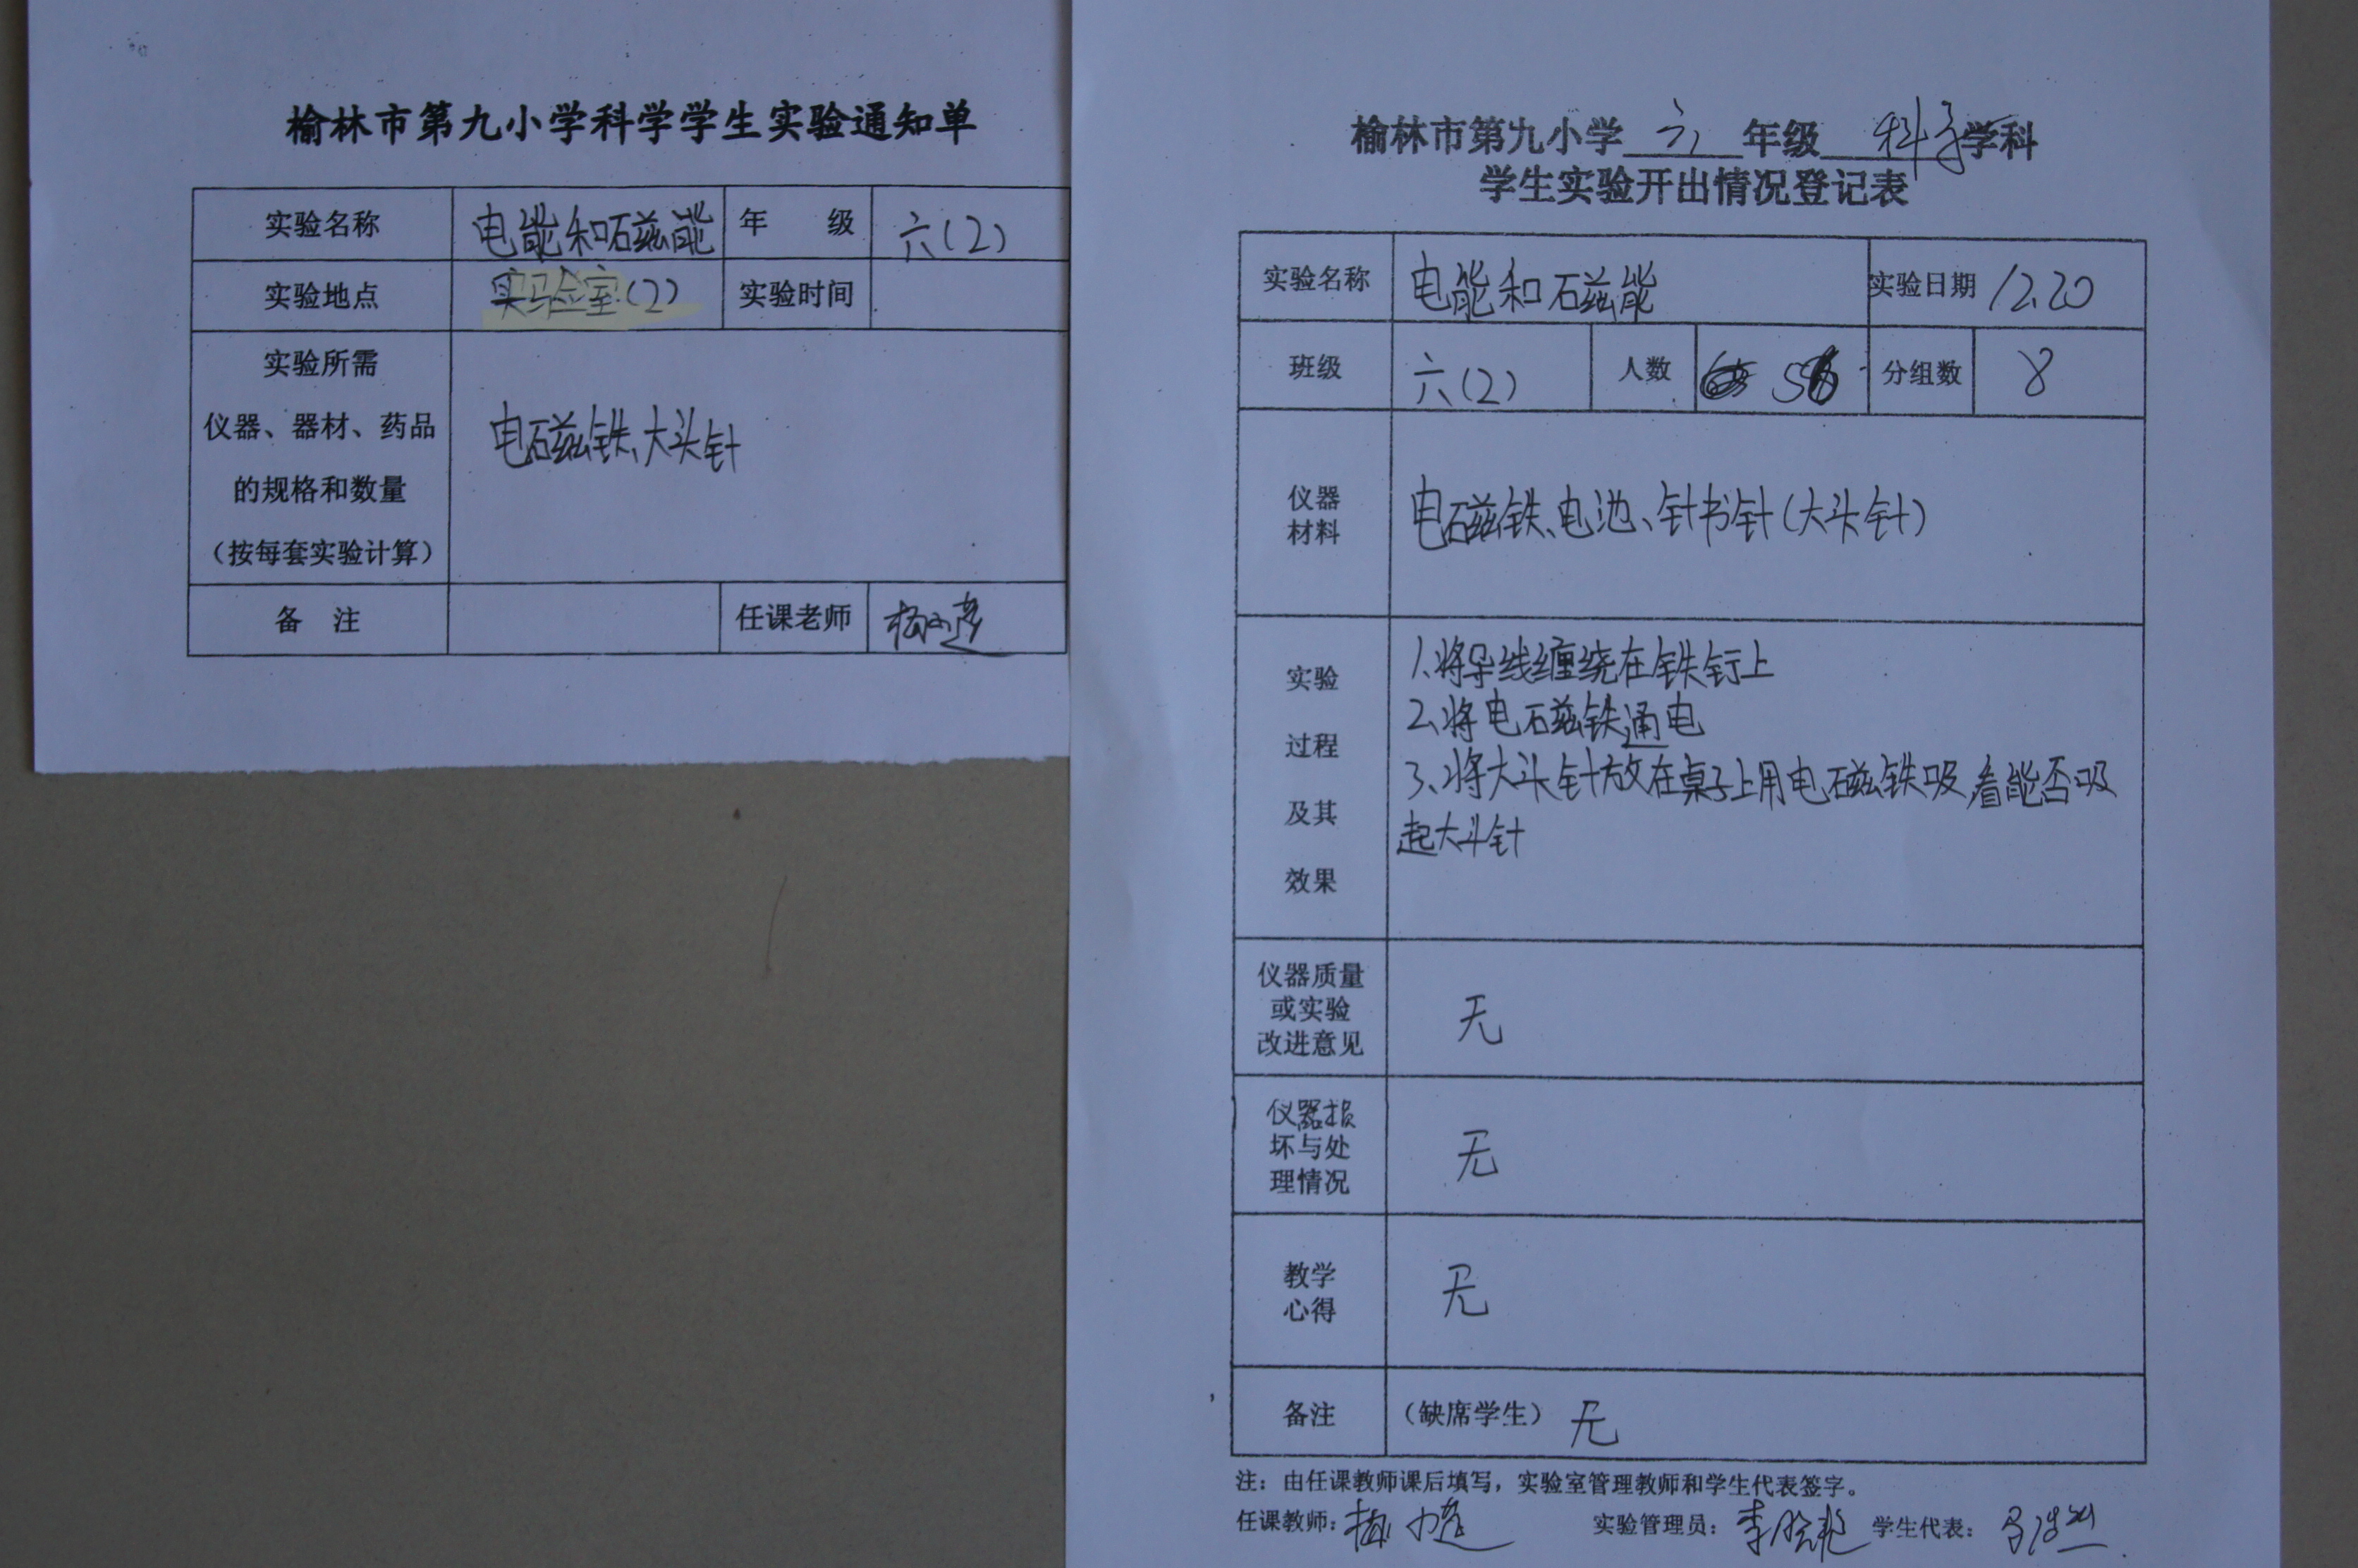 榆林市第九小学科学学生实验通知单
实验名称 电能和磁能 年 级 六(2)
实验地点 实验室(2) 实验时间
实验所需
仪器、器材、药品
的规格和数量
(按每套实验计算)
电磁铁、大头针
备 注 任课老师
榆林市第九小学 六 年级 科学 学科
学生实验开出情况登记表
实验名称 电能和磁能 实验日期 12.20
班级 六(2) 人数 分组数 8
仪器
材料
电磁铁、电池、针书针(大头针)
实验
过程
及其
效果
1、将导线缠绕在铁钉上
2、将电磁铁通电
3、将大头针放在桌子上用电磁铁吸,看能否吸
起大头针
仪器质量
或实验
改进意见
无
仪器损
坏与处
理情况
无
教学
心得
无
备注 (缺席学生) 无
注:由任课教师课后填写,实验室管理教师和学生代表签字。
任课教师: 实验管理员: 学生代表: